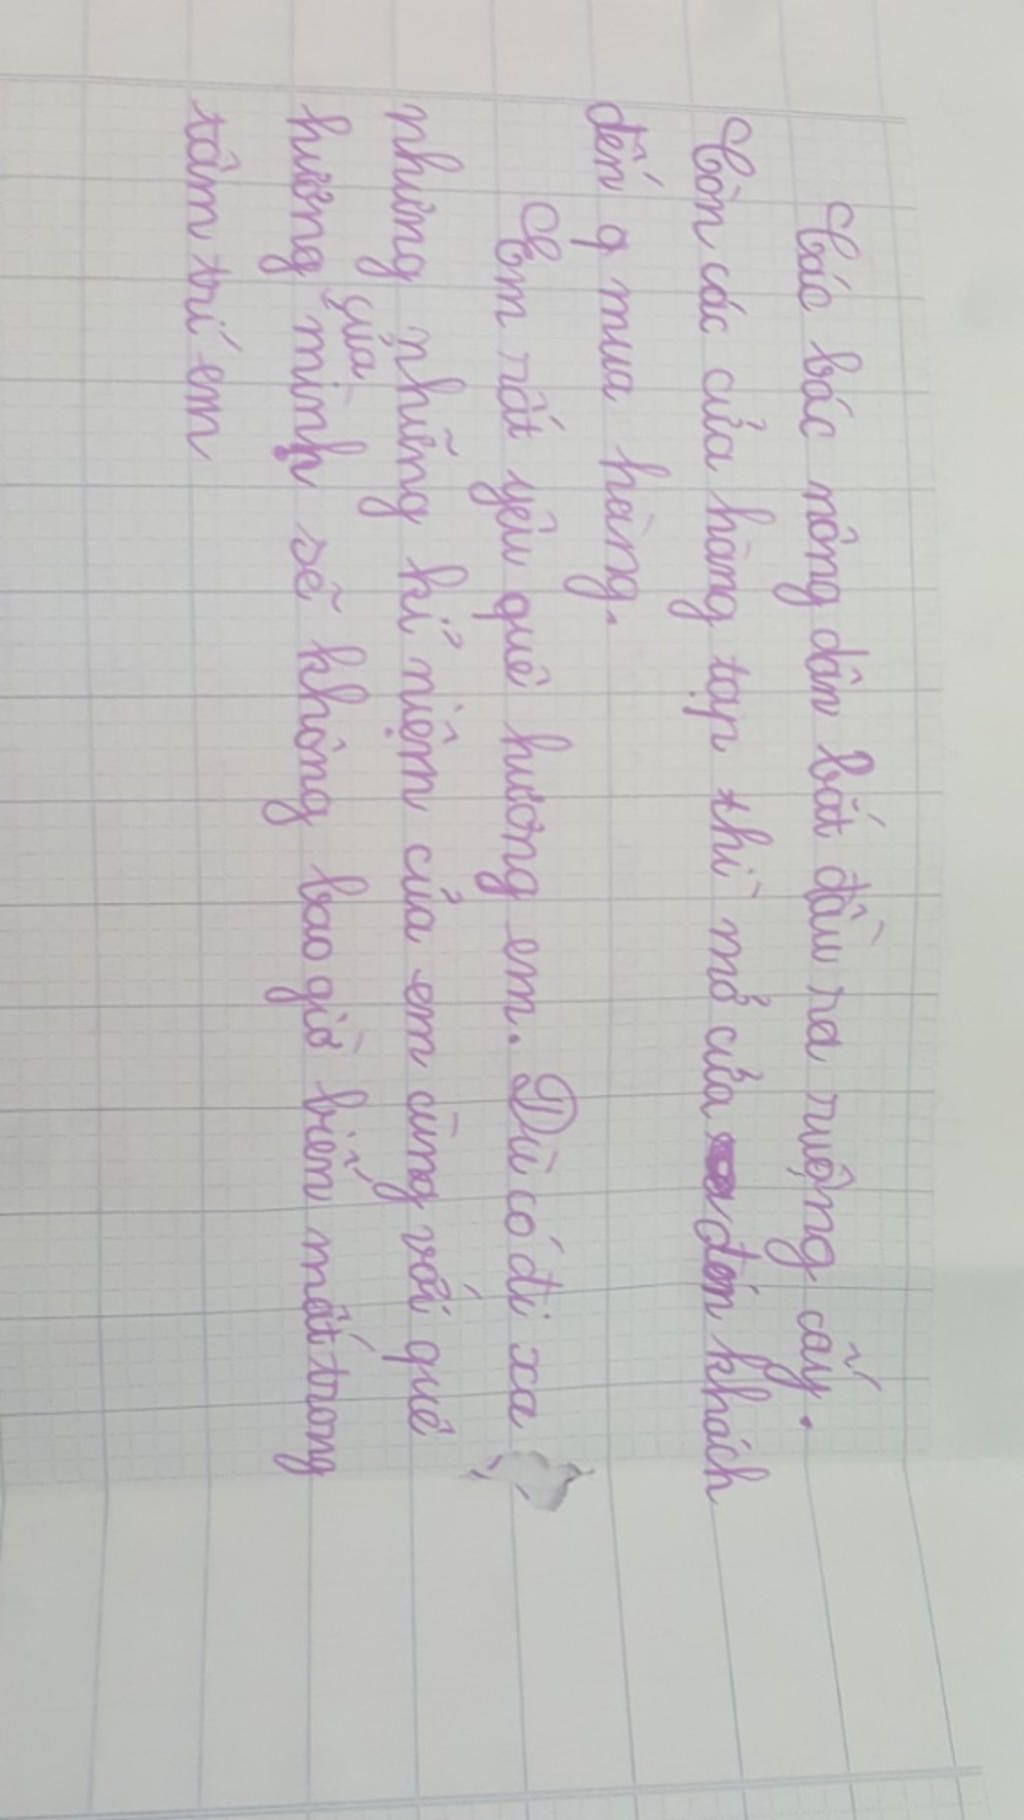 Các bác nông dân bắt đầu ra ruộng cấy.
Còn các cửa hàng tạp thì mở cửa đón khách
đến q mua hàng.
Em rất yêu quê hương em. Dù có đi xa
nhưng những kỉ niệm của em cùng với quê
hương mình sẽ không bao giờ biến mất trong
của
tâm trí em